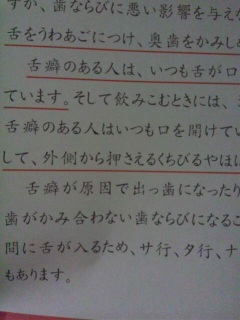 すが、歯ならびに悪い影響を与え
舌をうわあごにつけ、奥歯をかみし
舌癖のある人は、いつも舌が口
ています。そして飲みこむときには、
舌癖のある人はいつも口を開けてい
して、外側から押さえるくちびるやほ
舌癖が原因で出っ歯になったり
歯がかみ合わない歯ならびになるこ
間に舌が入るため、サ行、タ行、ナ
もあります。